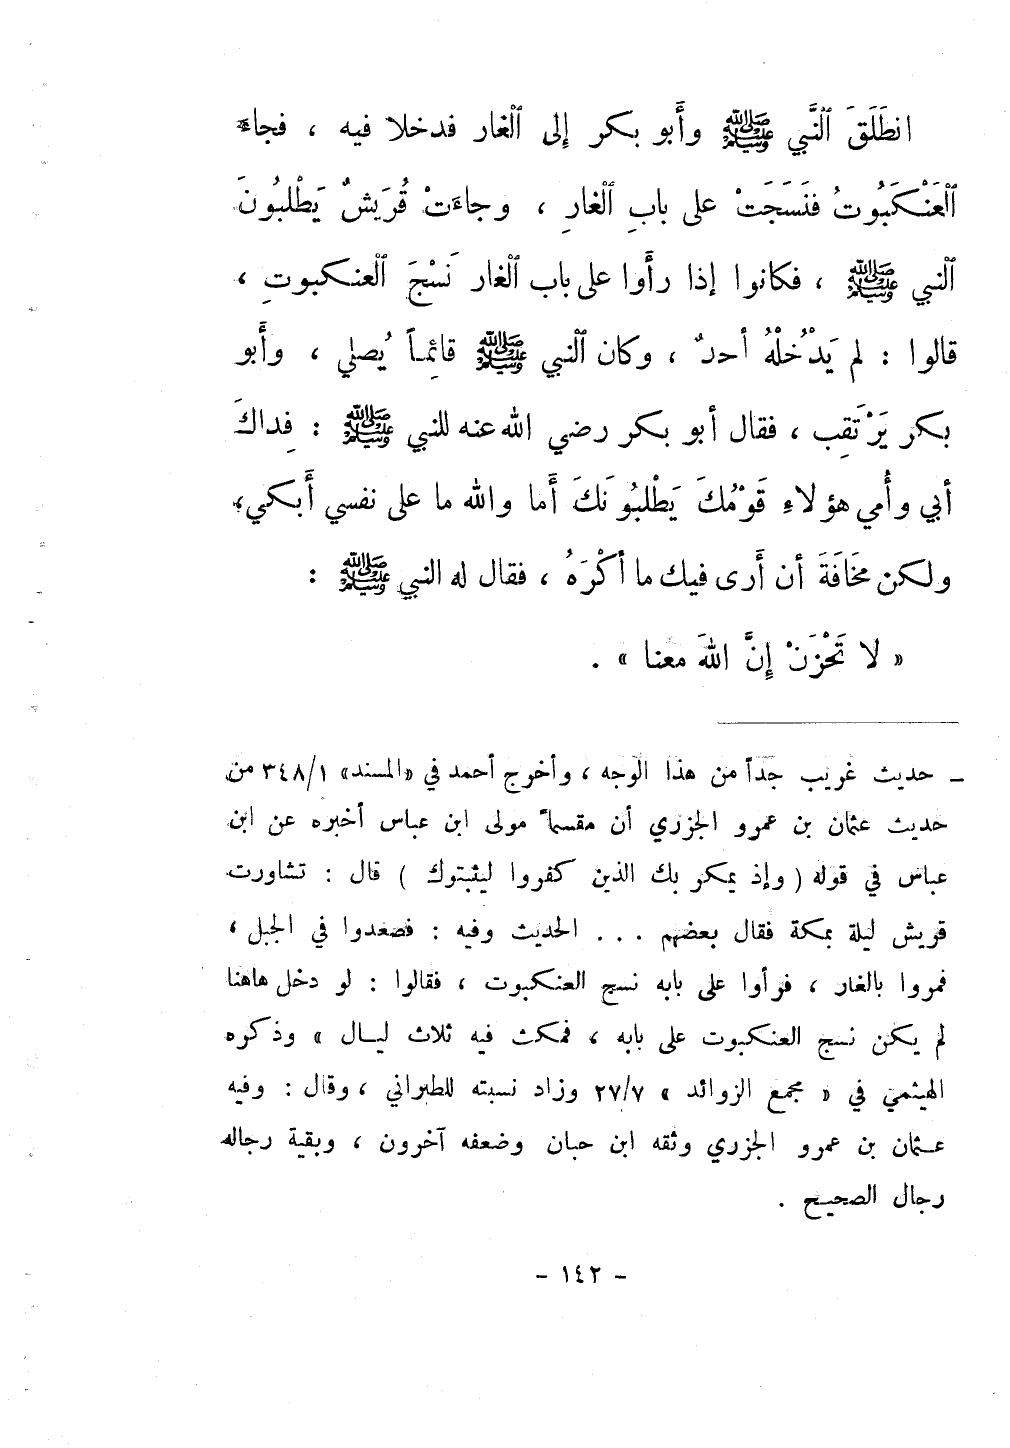 انطَلَقَ ٱلنَّبي ﷺ وأَبو بكر إلى ٱلغار فدخلا فيه ، فجاءَ
ٱلعَنْكَبُوتُ فنَسَجَتْ على بابِ ٱلغارِ ، وجاءَتْ قُرَيشٌ يَطْلبُونَ
ٱلنبي ﷺ ، فكانوا إذا رأَوا على باب ٱلغار نَسْجَ ٱلعنكبوتِ ،
قالوا : لم يَدْخلْهُ أحدٌ ، وكان ٱلنبي ﷺ قائِماً يُصلي ، وأَبو
بكر يَرْتَقِب ، فقال أبو بكر رضي الله عنه للنبي ﷺ : فِداكَ
أبي وأُمي هؤلاءِ قَوْمُكَ يَطْلبُونَكَ أَما والله ما على نفسي أَبكي ،
ولكن مخَافَةَ أن أَرى فيك ما أكْرَهُ ، فقال له النبي ﷺ :
« لا تَحْزَنْ إِنَّ اللهَ معَنا » .
ـ حديث غريب جداً من هذا الوجه ، وأخرج أحمد في «المسند» ٣٤٨/١ من
حديث عثمان بن عمرو الجزري أن مقسماً مولى ابن عباس أخبره عن ابن
عباس في قوله ( وإذ يمكر بك الذين كفروا ليثبتوك ) قال : تشاورت
قريش ليلة بمكة فقال بعضهم ... الحديث وفيه : فصعدوا في الجبل ،
فمروا بالغار ، فرأوا على بابه نسج العنكبوت ، فقالوا : لو دخل هاهنا
لم يكن نسج العنكبوت على بابه ، فمكث فيه ثلاث ليال » وذكره
الهيثمي في « مجمع الزوائد » ٢٧/٧ وزاد نسبته للطبراني ، وقال : وفيه
عثمان بن عمرو الجزري وثقه ابن حبان وضعفه آخرون ، وبقية رجاله
رجال الصحيح .
- ١٤٢ -